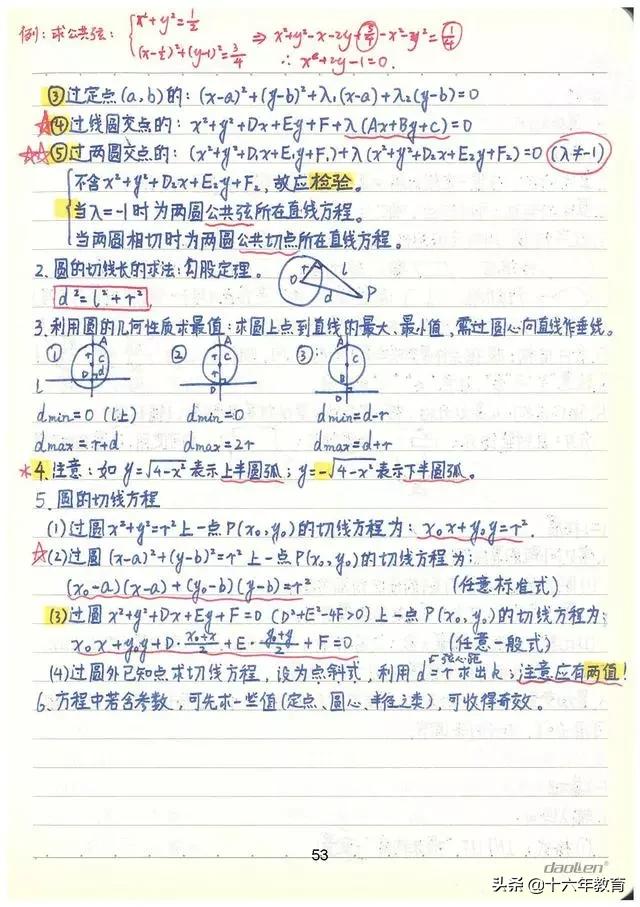 例：求公共弦：{x²+y²=1/2
(x-1/2)²+(y-1)²=3/4 ⇒ x²+y²-x-2y+3/4-x²-y²=1/4
∴ x+2y-1=0.
③过定点(a,b)的：(x-a)²+(y-b)²+λ₁(x-a)+λ₂(y-b)=0
☆④过线圆交点的：x²+y²+Dx+Ey+F+λ(Ax+By+C)=0
☆☆⑤过两圆交点的：(x²+y²+D₁x+E₁y+F₁)+λ(x²+y²+D₂x+E₂y+F₂)=0 (λ≠-1)
不含x²+y²+D₂x+E₂y+F₂，故应检验。
当λ=-1时为两圆公共弦所在直线方程。
当两圆相切时为两圆公共切点所在直线方程。
2. 圆的切线长的求法：勾股定理。
O r l d P
d²=l²+r²
3. 利用圆的几何性质求最值：求圆上点到直线的最大、最小值，需过圆心向直线作垂线。
① A r C r d D l ② A r C D ③ A r C D
dmin=0 (l上) dmin=0 dmin=d-r
dmax=r+d dmax=2r dmax=d+r
*4. 注意：如y=√4-x² 表示上半圆弧；y=-√4-x² 表示下半圆弧。
5. 圆的切线方程
(1)过圆x²+y²=r²上一点P(x₀,y₀)的切线方程为：x₀x+y₀y=r².
☆(2)过圆(x-a)²+(y-b)²=r²上一点P(x₀,y₀)的切线方程为：
(x₀-a)(x-a)+(y₀-b)(y-b)=r² (任意标准式)
(3)过圆x²+y²+Dx+Ey+F=0 (D²+E²-4F>0)上一点P(x₀,y₀)的切线方程为：
x₀x+y₀y+D·(x₀+x)/2+E·(y₀+y)/2+F=0 (任意一般式)
(4)过圆外已知点求切线方程，设为点斜式，利用d=r求出k；注意应有两值！
弦心距
6. 方程中若含参数，可先求一些值(定点、圆心、半径之类)，可收得奇效。
53
daolen
头条 @十六年教育